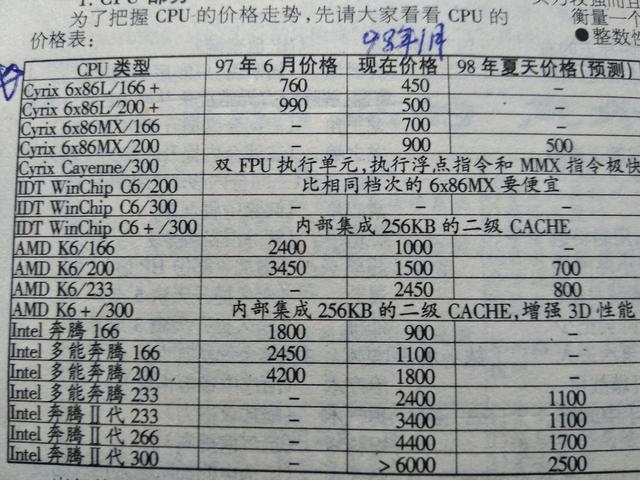 为了把握CPU的价格走势,先请大家看看CPU的
价格表:
98年1月
衡量一个
●整数性
CPU类型 97年6月价格 现在价格 98年夏天价格(预测)
Cyrix 6x86L/166+ 760 450 –
Cyrix 6x86L/200+ 990 500 –
Cyrix 6x86MX/166 – 700 –
Cyrix 6x86MX/200 – 900 500
Cyrix Cayenne/300 双FPU执行单元,执行浮点指令和MMX指令极快
IDT WinChip C6/200 比相同档次的6x86MX要便宜
IDT WinChip C6/300 – – –
IDT WinChip C6+/300 内部集成256KB的二级CACHE
AMD K6/166 2400 1000 –
AMD K6/200 3450 1500 700
AMD K6/233 – 2450 800
AMD K6+/300 内部集成256KB的二级CACHE,增强3D性能
Intel 奔腾166 1800 900 –
Intel 多能奔腾166 2450 1100 –
Intel 多能奔腾200 4200 1800 –
Intel 多能奔腾233 – 2400 1100
Intel 奔腾Ⅱ代233 – 3400 1100
Intel 奔腾Ⅱ代266 – 4400 1700
Intel 奔腾Ⅱ代300 – >6000 2500